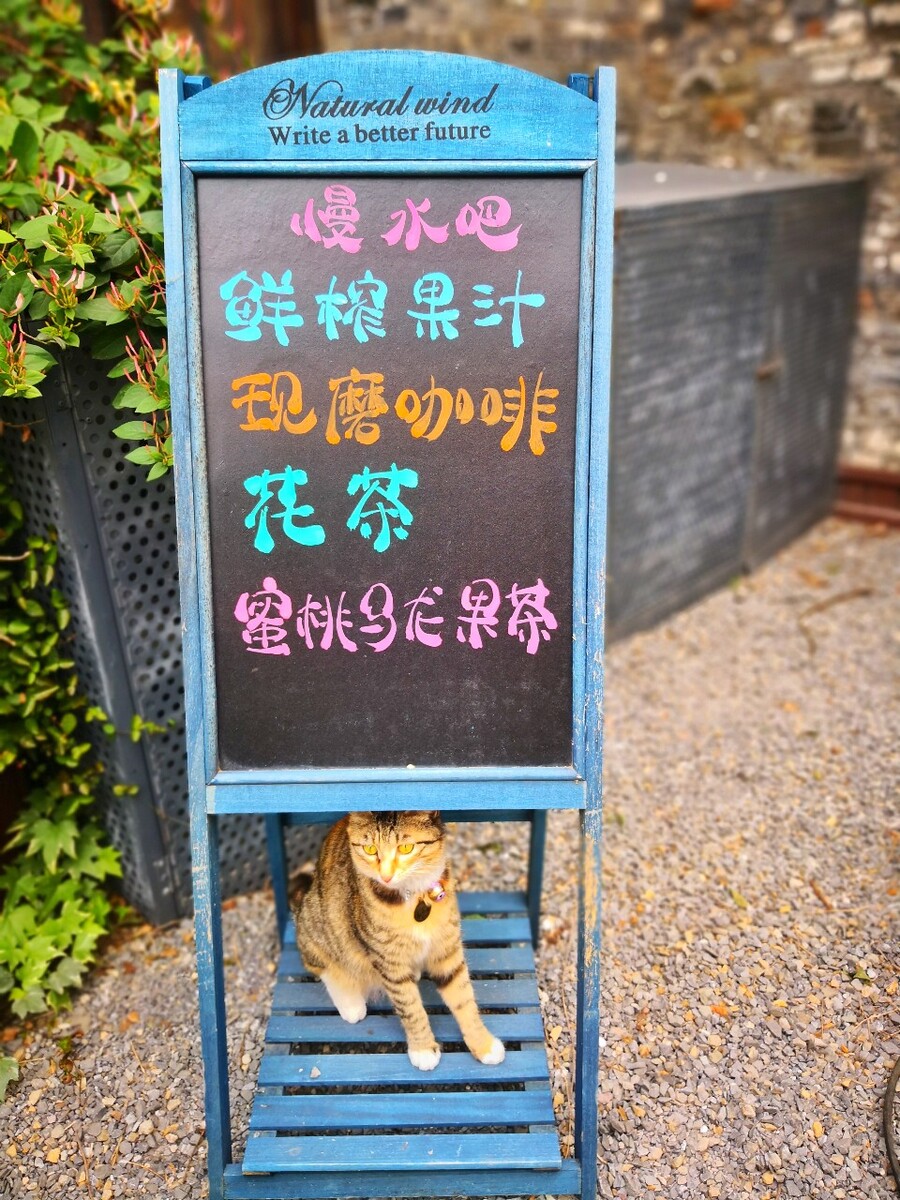 Natural wind
Write a better future
慢水吧
鲜榨果汁
现磨咖啡
花茶
蜜桃乌龙果茶